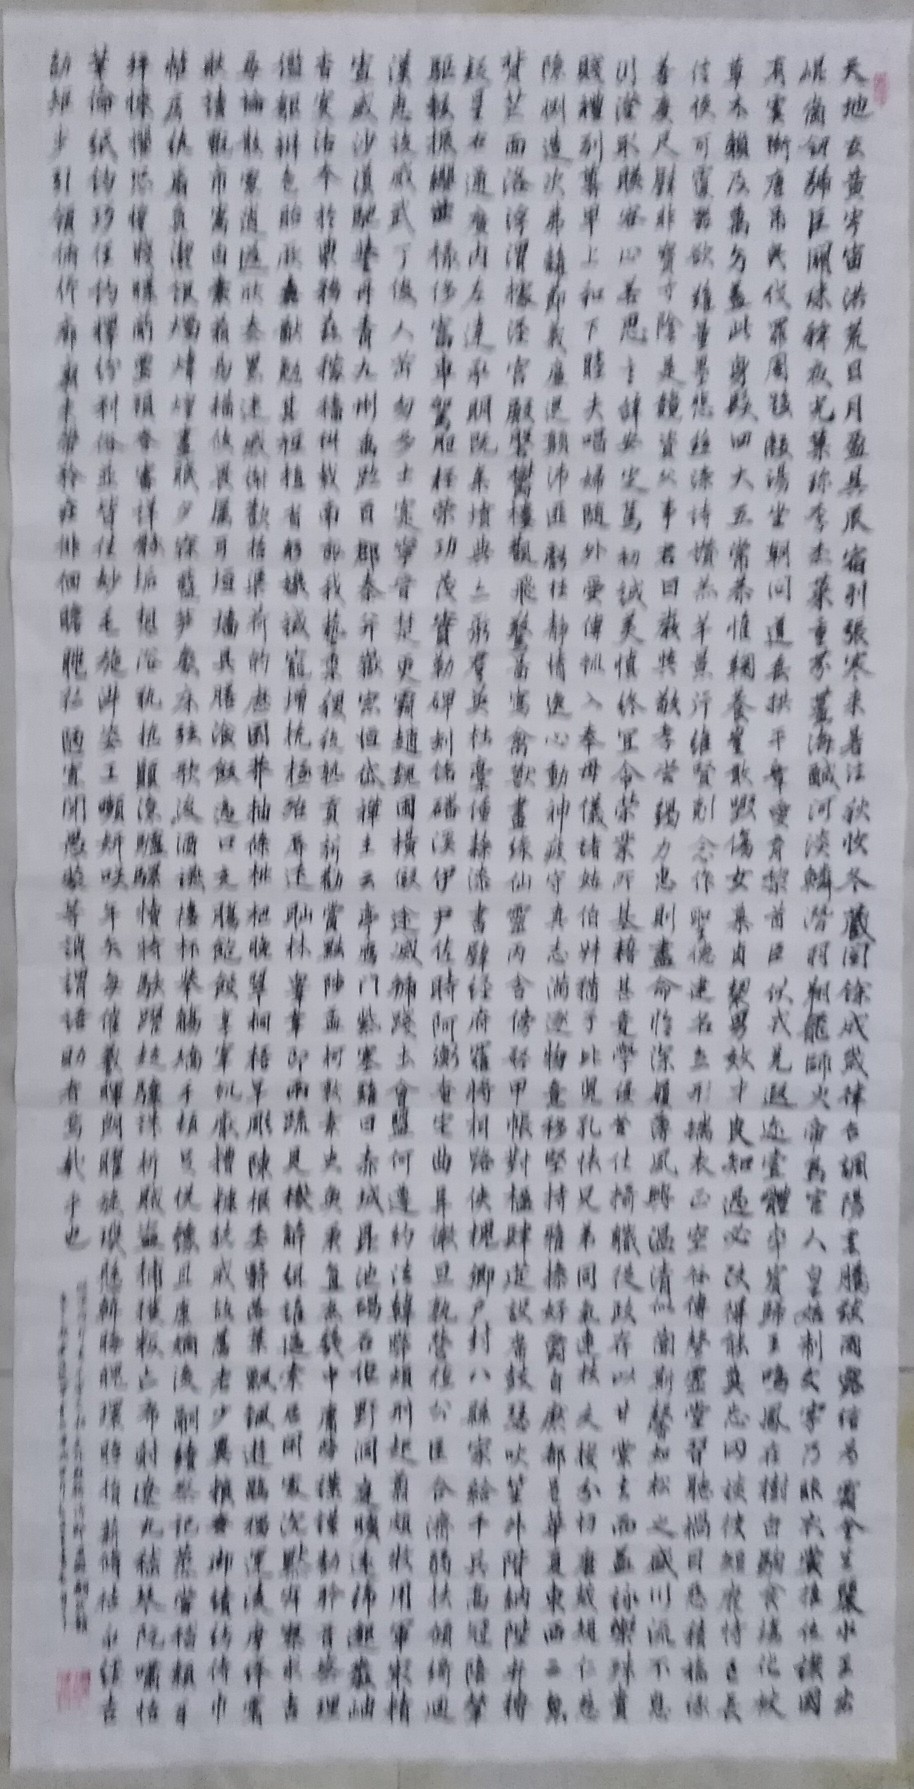 天地玄黃宇宙洪荒日月盈昃辰宿列張寒來暑往秋收冬藏閏餘成歲律呂調陽雲騰致雨露結為霜金生麗水玉出
崑崗劍號巨闕珠稱夜光菓珍李柰菜重芥薑海鹹河淡鱗潛羽翔龍師火帝鳥官人皇始制文字乃服衣裳推位讓國
有虞陶唐弔民伐罪周發殷湯坐朝問道垂拱平章愛育黎首臣伏戎羌遐邇壹體率賓歸王鳴鳳在樹白駒食場化被
草木賴及萬方蓋此身髮四大五常恭惟鞠養豈敢毀傷女慕貞絜男效才良知過必改得能莫忘罔談彼短靡恃己長
信使可覆器欲難量墨悲絲染詩讚羔羊景行維賢剋念作聖德建名立形端表正空谷傳聲虛堂習聽禍因惡積福緣
善慶尺璧非寶寸陰是競資父事君曰嚴與敬孝當竭力忠則盡命臨深履薄夙興溫清似蘭斯馨如松之盛川流不息
川澄取映容止若思言辭安定篤初誠美慎終宜令榮業所基藉甚無竟學優登仕攝職從政存以甘棠去而益詠樂殊貴
賤禮別尊卑上和下睦夫唱婦隨外受傅訓入奉母儀諸姑伯叔猶子比兒孔懷兄弟同氣連枝交友投分切磨箴規仁慈
隱惻造次弗離節義廉退顛沛匪虧性靜情逸心動神疲守真志滿逐物意移堅持雅操好爵自縻都邑華夏東西二京
背芒面洛浮渭據涇宮殿盤鬱樓觀飛驚圖寫禽獸畫綵仙靈丙舍傍啟甲帳對楹肆筵設席鼓瑟吹笙升階納陛弁轉
疑星右通廣內左達承明既集墳典亦聚群英杜稾鍾隸漆書壁經府羅將相路俠槐卿戶封八縣家給千兵高冠陪輦
驅轂振纓世祿侈富車駕肥輕策功茂實勒碑刻銘磻溪伊尹佐時阿衡奄宅曲阜微旦孰營桓公匡合濟弱扶傾綺迴
漢惠說感武丁俊乂密勿多士寔寧晉楚更霸趙魏困橫假途滅虢踐土會盟何遵約法韓弊煩刑起翦頗牧用軍最精
宣威沙漠馳譽丹青九州禹跡百郡秦并嶽宗恒岱禪主云亭雁門紫塞雞田赤城昆池碣石鉅野洞庭曠遠綿邈巖岫
杳冥治本於農務茲稼穡俶載南畝我藝黍稷稅熟貢新勸賞黜陟孟軻敦素史魚秉直庶幾中庸勞謙謹勅聆音察理
鑑貌辨色貽厥嘉猷勉其祗植省躬譏誡寵增抗極殆辱近恥林皋幸即兩疏見機解組誰逼索居閒處沉默寂寥求古
尋論散慮逍遙欣奏累遣慼謝歡招渠荷的歷園莽抽條枇杷晚翠桐梧早彫陳根委翳落葉飄颻遊鵾獨運凌摩絳霄
耽讀翫市寓目囊箱易輶攸畏屬耳垣牆具膳飡飯適口充腸飽飫享宰飢厭糟糠親戚故舊老少異糧妾御績紡侍巾
帷房紈扇員潔銀燭煒煌晝眠夕寐藍笋象床弦歌酒讌接杯舉觴矯手頓足悅豫且康嫡後嗣續祭祀蒸嘗稽顙再
拜悚懼恐惶牋牒簡要顧答審詳骸垢想浴執熱願涼驢騾犢特駭躍超驤誅斬賊盜捕獲叛亡布射遼丸嵇琴阮嘯恬
筆倫紙鈞巧任釣釋紛利俗並皆佳妙毛施淑姿工顰妍笑年矢每催羲暉朗曜旋璣懸斡晦魄環照指薪修祜永綏吉
劭矩步引領俯仰廊廟束帶矜莊徘徊瞻眺孤陋寡聞愚蒙等誚謂語助者焉哉乎也